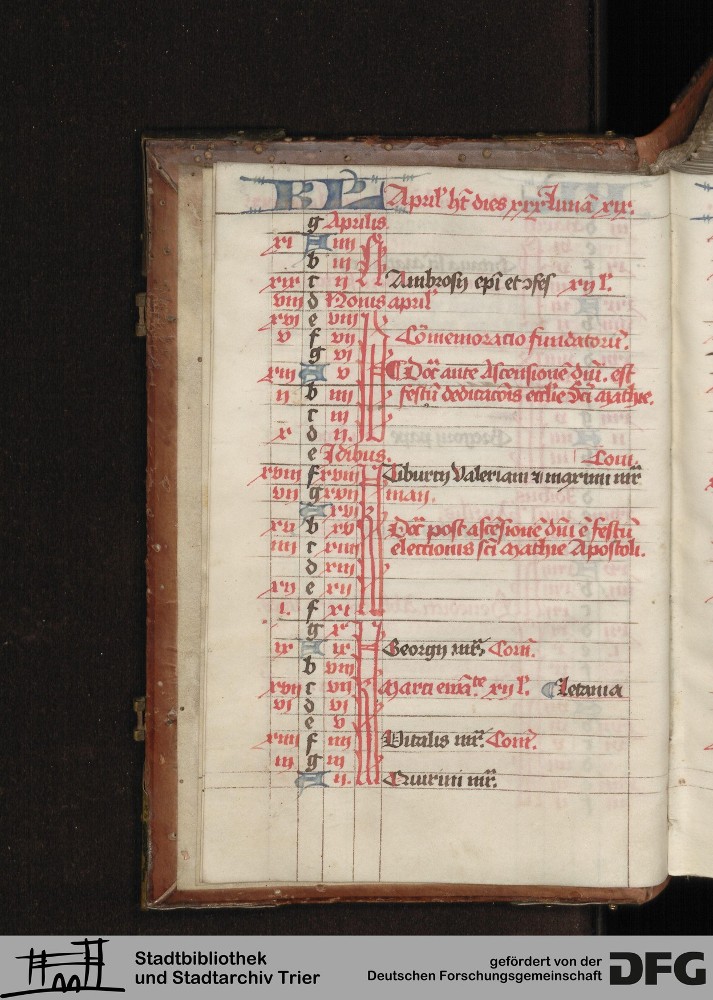 KL April' ht dies xxx luna xix.
g Aprilis.
xi A iiii
b iii
xix c ii Ambrosij epi et ɔfes xij l'.
viii d Nonis april'
xvi e viii
v f vii Cōmemoracio fundatorū.
g vi
xiii A v Doc ante Ascensionē dni. est
ii b iiii festū dedicacōis ecclie Sci Mathie.
c iii
x d ii.
e Idibus. Com.
xviii f xviii Tiburcij Valeriani z maximi mr
vii g xvii
A xvi
xv b xv Doc post ascēsionē dni ē festū
iiii c xiiii eleccionis sci Mathie Apostoli.
d xiii
xii e
i. f xi
g x
ix A ix Georgij mr̄. Com̄.
b viii
xvii c vii Marci ewāte. xij l'. Letania
vi d vi
e v
xiiii f iiii Vitalis mr̄. Com̄.
iii g iii
A ii. mr̄.
Stadtbibliothek
und Stadtarchiv Trier
gefördert von der
Deutschen Forschungsgemeinschaft
DFG